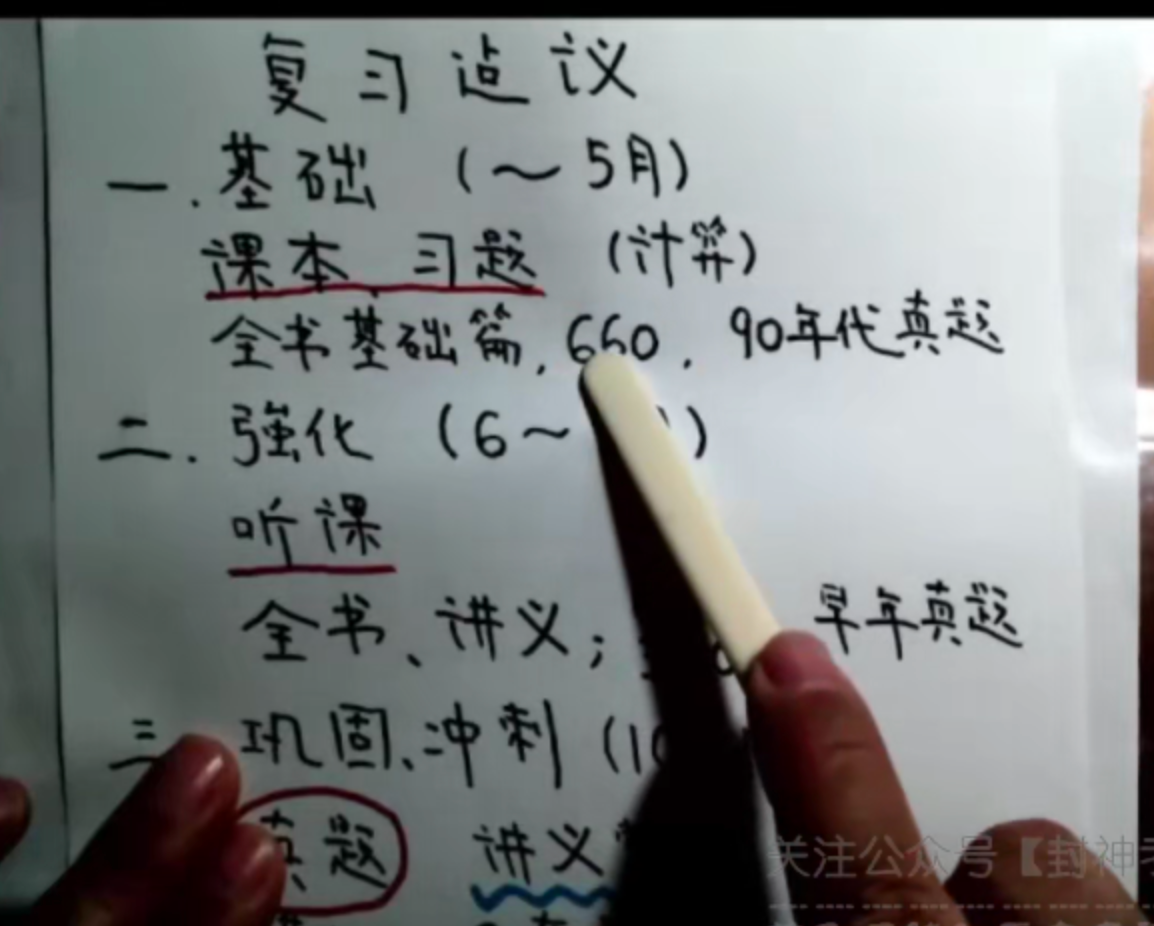 复习建议
一.基础 (～5月)
课本、习题 (计算)
全书基础篇,660, 90年代真题
二.強化 (6～ )
听课
全书、讲义; 早年真题
三 巩固、冲刺 (10
真题 讲义
关注公众号【封神考